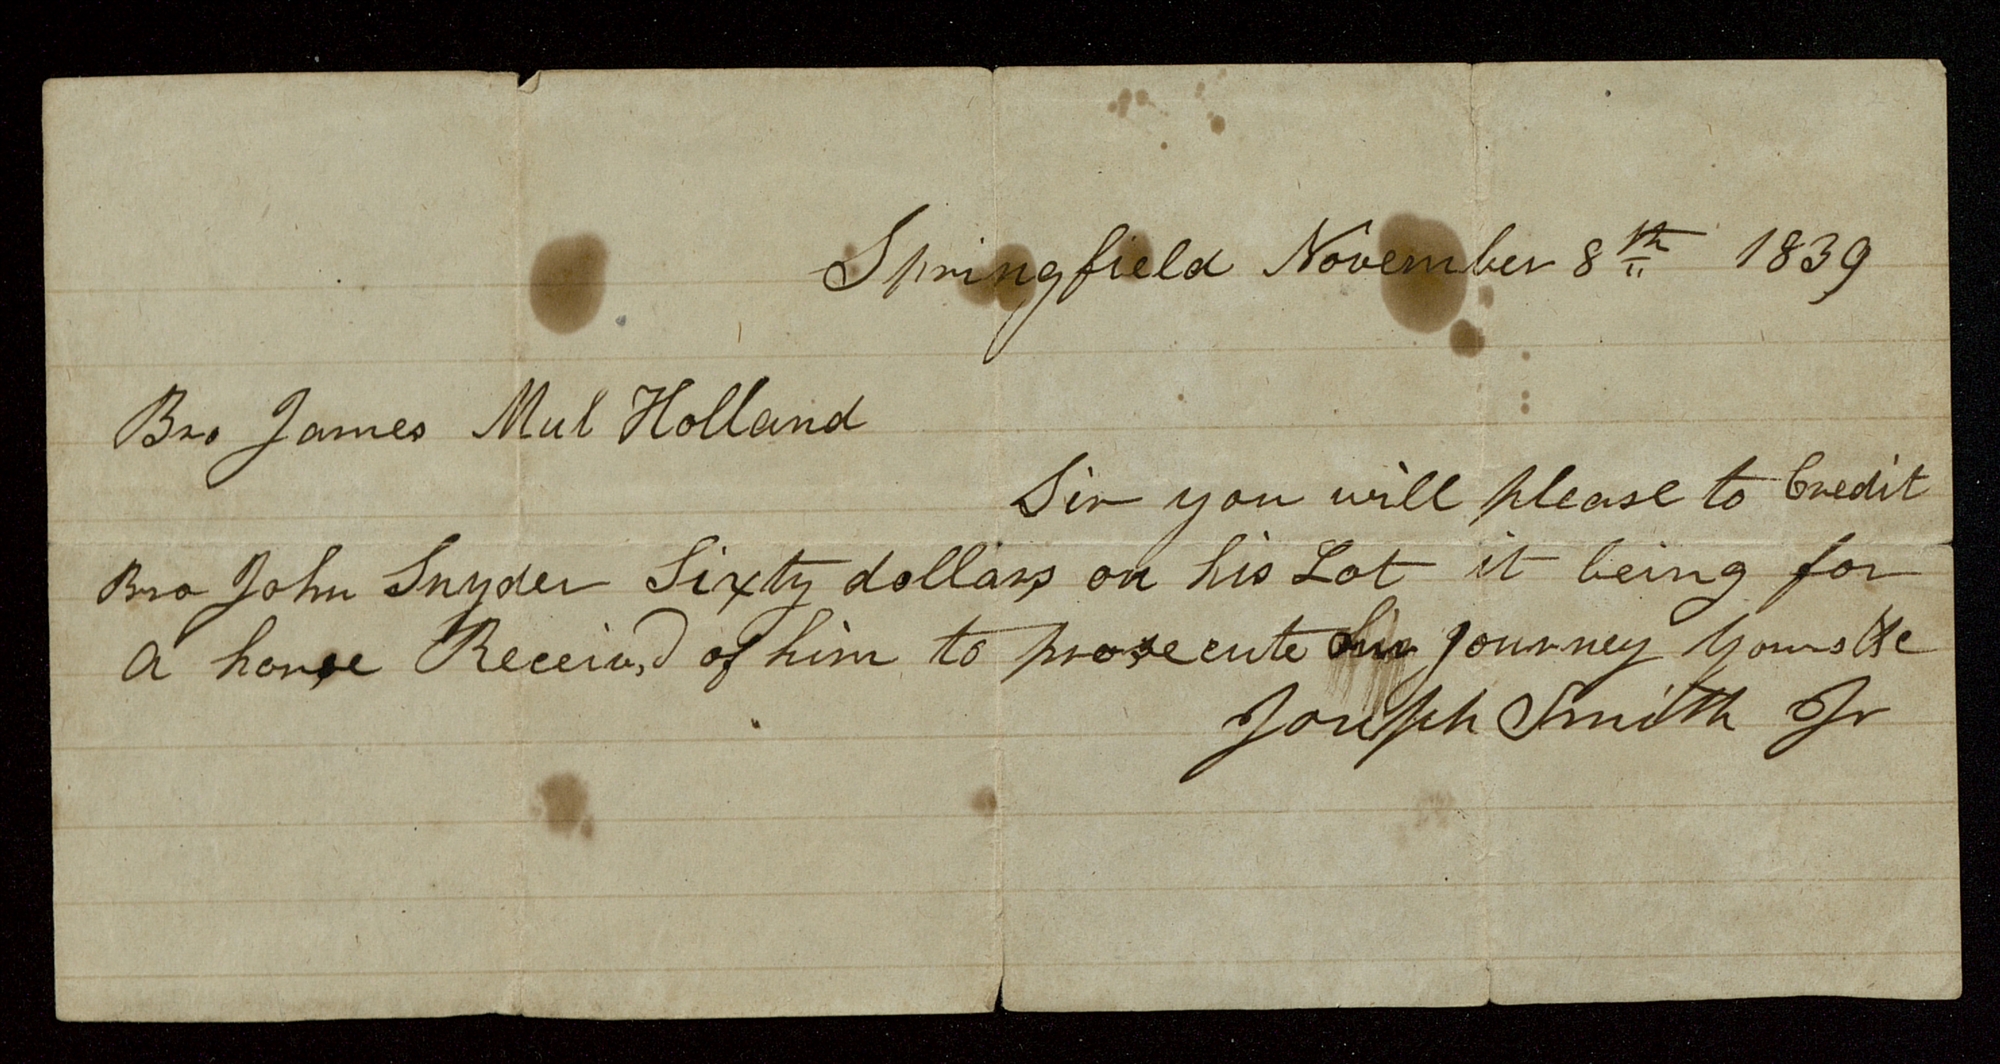 Springfield November 8th 1839
Bro James Mul Holland
Sir you will please to Credit
Bro John Snyder Sixty dollars on his Lot it being for
a horse Receiv,d of him to prosecute our Journey Yours &c
Joseph Smith Jr